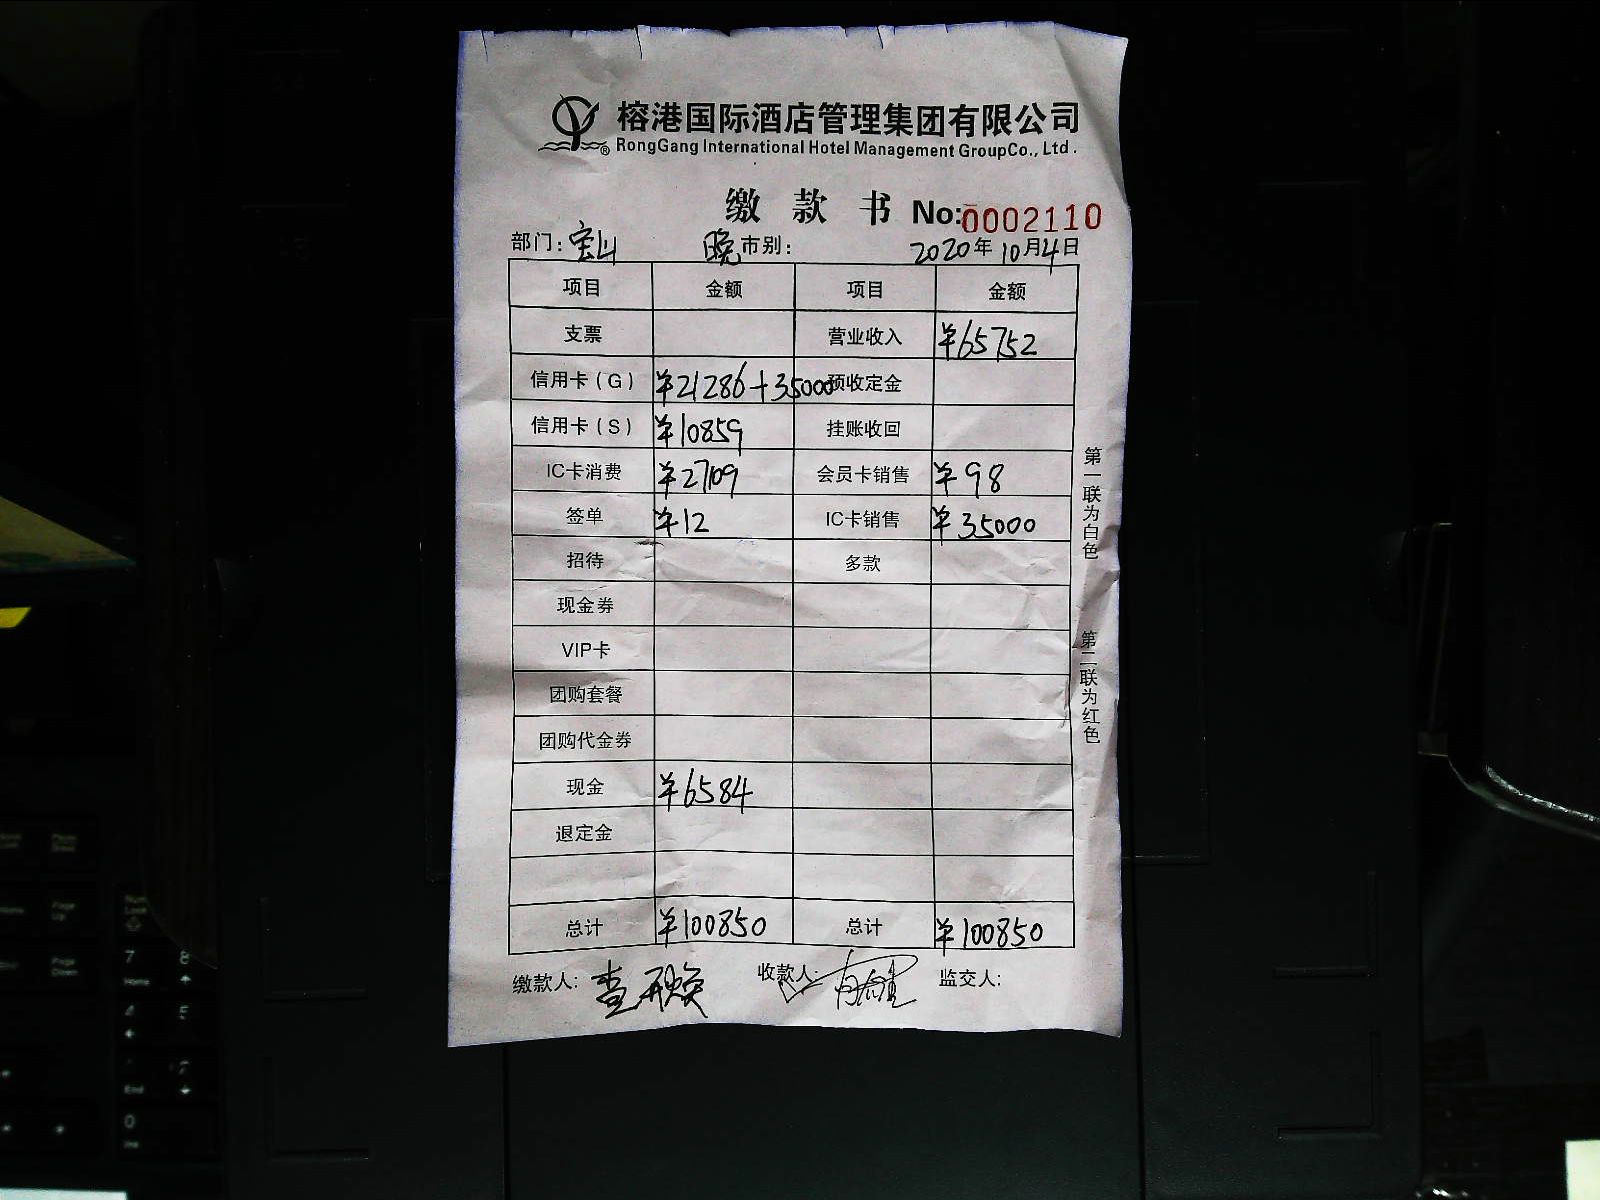 榕港国际酒店管理集团有限公司
RongGang International Hotel Management GroupCo., Ltd .
缴 款 书 No:0002110
部门: 宝山 晚市别: 2020年10月4日
项目 金额 项目 金额
支票 营业收入 ¥65752
信用卡(G) ¥21286+35000 预收定金
信用卡(S) ¥10859 挂账收回
IC卡消费 ¥27109 会员卡销售 ¥98
签单 ¥12 IC卡销售 ¥35000
招待 多款
现金券
VIP卡
团购套餐
团购代金券
现金 ¥6584
退定金
总计 ¥100850 总计 ¥100850
缴款人: 收款人: 监交人:
第一联为白色
第二联为红色